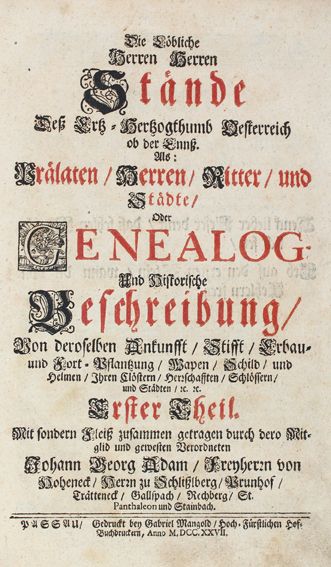 Die Löbliche
Herren Herren
Stände
Deß Ertz-Hertzogthumb Oesterreich
ob der Ennß.
Als:
Prälaten / Herren / Ritter / und
Städte /
Oder
GENEALOG-
Und Historische
Beschreibung /
Von deroselben Ankunfft / Stifft / Erbau-
und Fort-Pflantzung / Wapen / Schild / und
Helmen / Ihren Clöstern / Herrschafften / Schlössern /
und Städten / ꝛc. ꝛc.
Erster Theil.
Mit sondern Fleiß zusammen getragen durch dero Mit-
glid und gewesten Verordneten
Johann Georg Adam / Freyherrn von
Hoheneck / Herrn zu Schlißlberg / Brunhof /
Trätteneck / Gallspach / Rechberg / St.
Panthaleon und Stainbach.
PASSAU / Gedruckt bey Gabriel Mangold / Hoch-Fürstlichen Hof-
Buchdruckern, Anno M, DCC. XXVII.